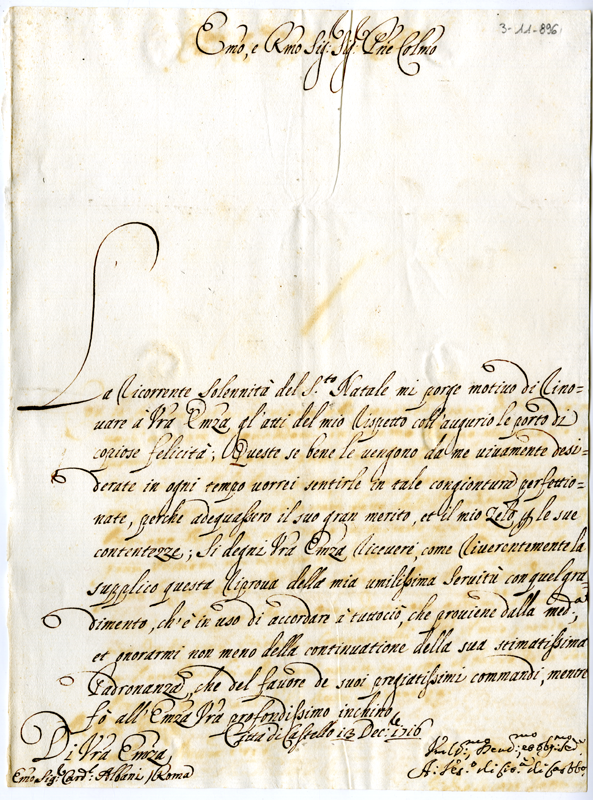 3-11-896
Emo, e Rmo Sig: Sig: Prne Colmo
La Ricorrente Solennità del S.to Natale mi porge motivo di Rino-
vare à Vra Emza gl'atti del mio Rispetto coll'augurio le porto di
copiose felicità; Queste se bene le vengono da me vivamente desi-
derate in ogni tempo vorrei sentirle in tale congiontura perfettio-
nate, perche adequassero il suo gran merito, et il mio Zelo le sue
contentezze; Si degni Vra Emza Ricevere, come Riverentemente la
supplico questa Riprova della mia umilissima Servitù con quel gra-
dimento, ch'è in uso di accordare à tuttociò, che proviene dalla med.a,
et onorarmi non meno della continuatione della sua stimatissima
Padronanza, che del favore de suoi pregiatissimi commandi, mentre
fò all'Emza Vra profondissimo inchino
Città di Castello Dec:le 1716
Di Vra Emza
Emo Sig: Card: Albani / Roma